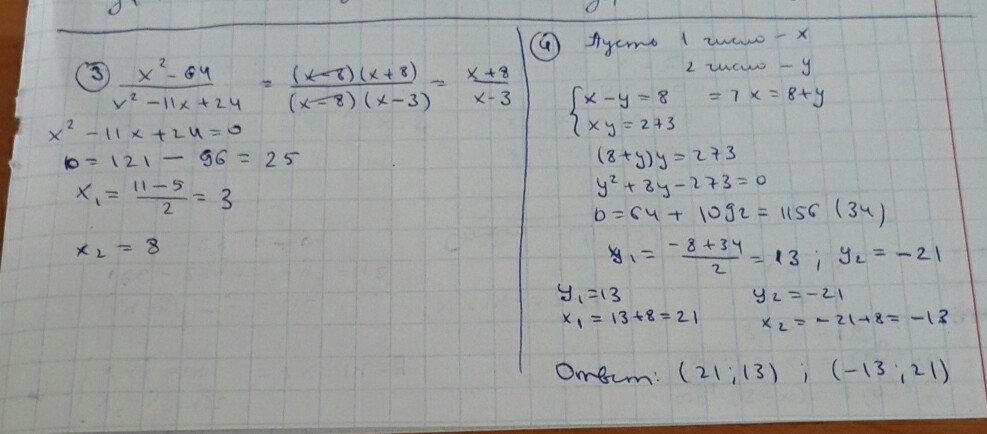 ③ x² - 64 / x² - 11x + 24 = (x-8)(x+8) / (x-8)(x-3) = x+8 / x-3
x² - 11x + 24 = 0
D = 121 - 96 = 25
x₁ = 11-5 / 2 = 3
x₂ = 8
④ Пусть 1 число - x
2 число - y
{ x - y = 8 => x = 8+y
xy = 273
(8+y)y = 273
y² + 8y - 273 = 0
D = 64 + 1092 = 1156 (34)
y₁ = -8+34 / 2 = 13 ; y₂ = -21
y₁ = 13 y₂ = -21
x₁ = 13+8 = 21 x₂ = -21+8 = -13
Ответ: (21 ; 13) ; (-13 ; 21)